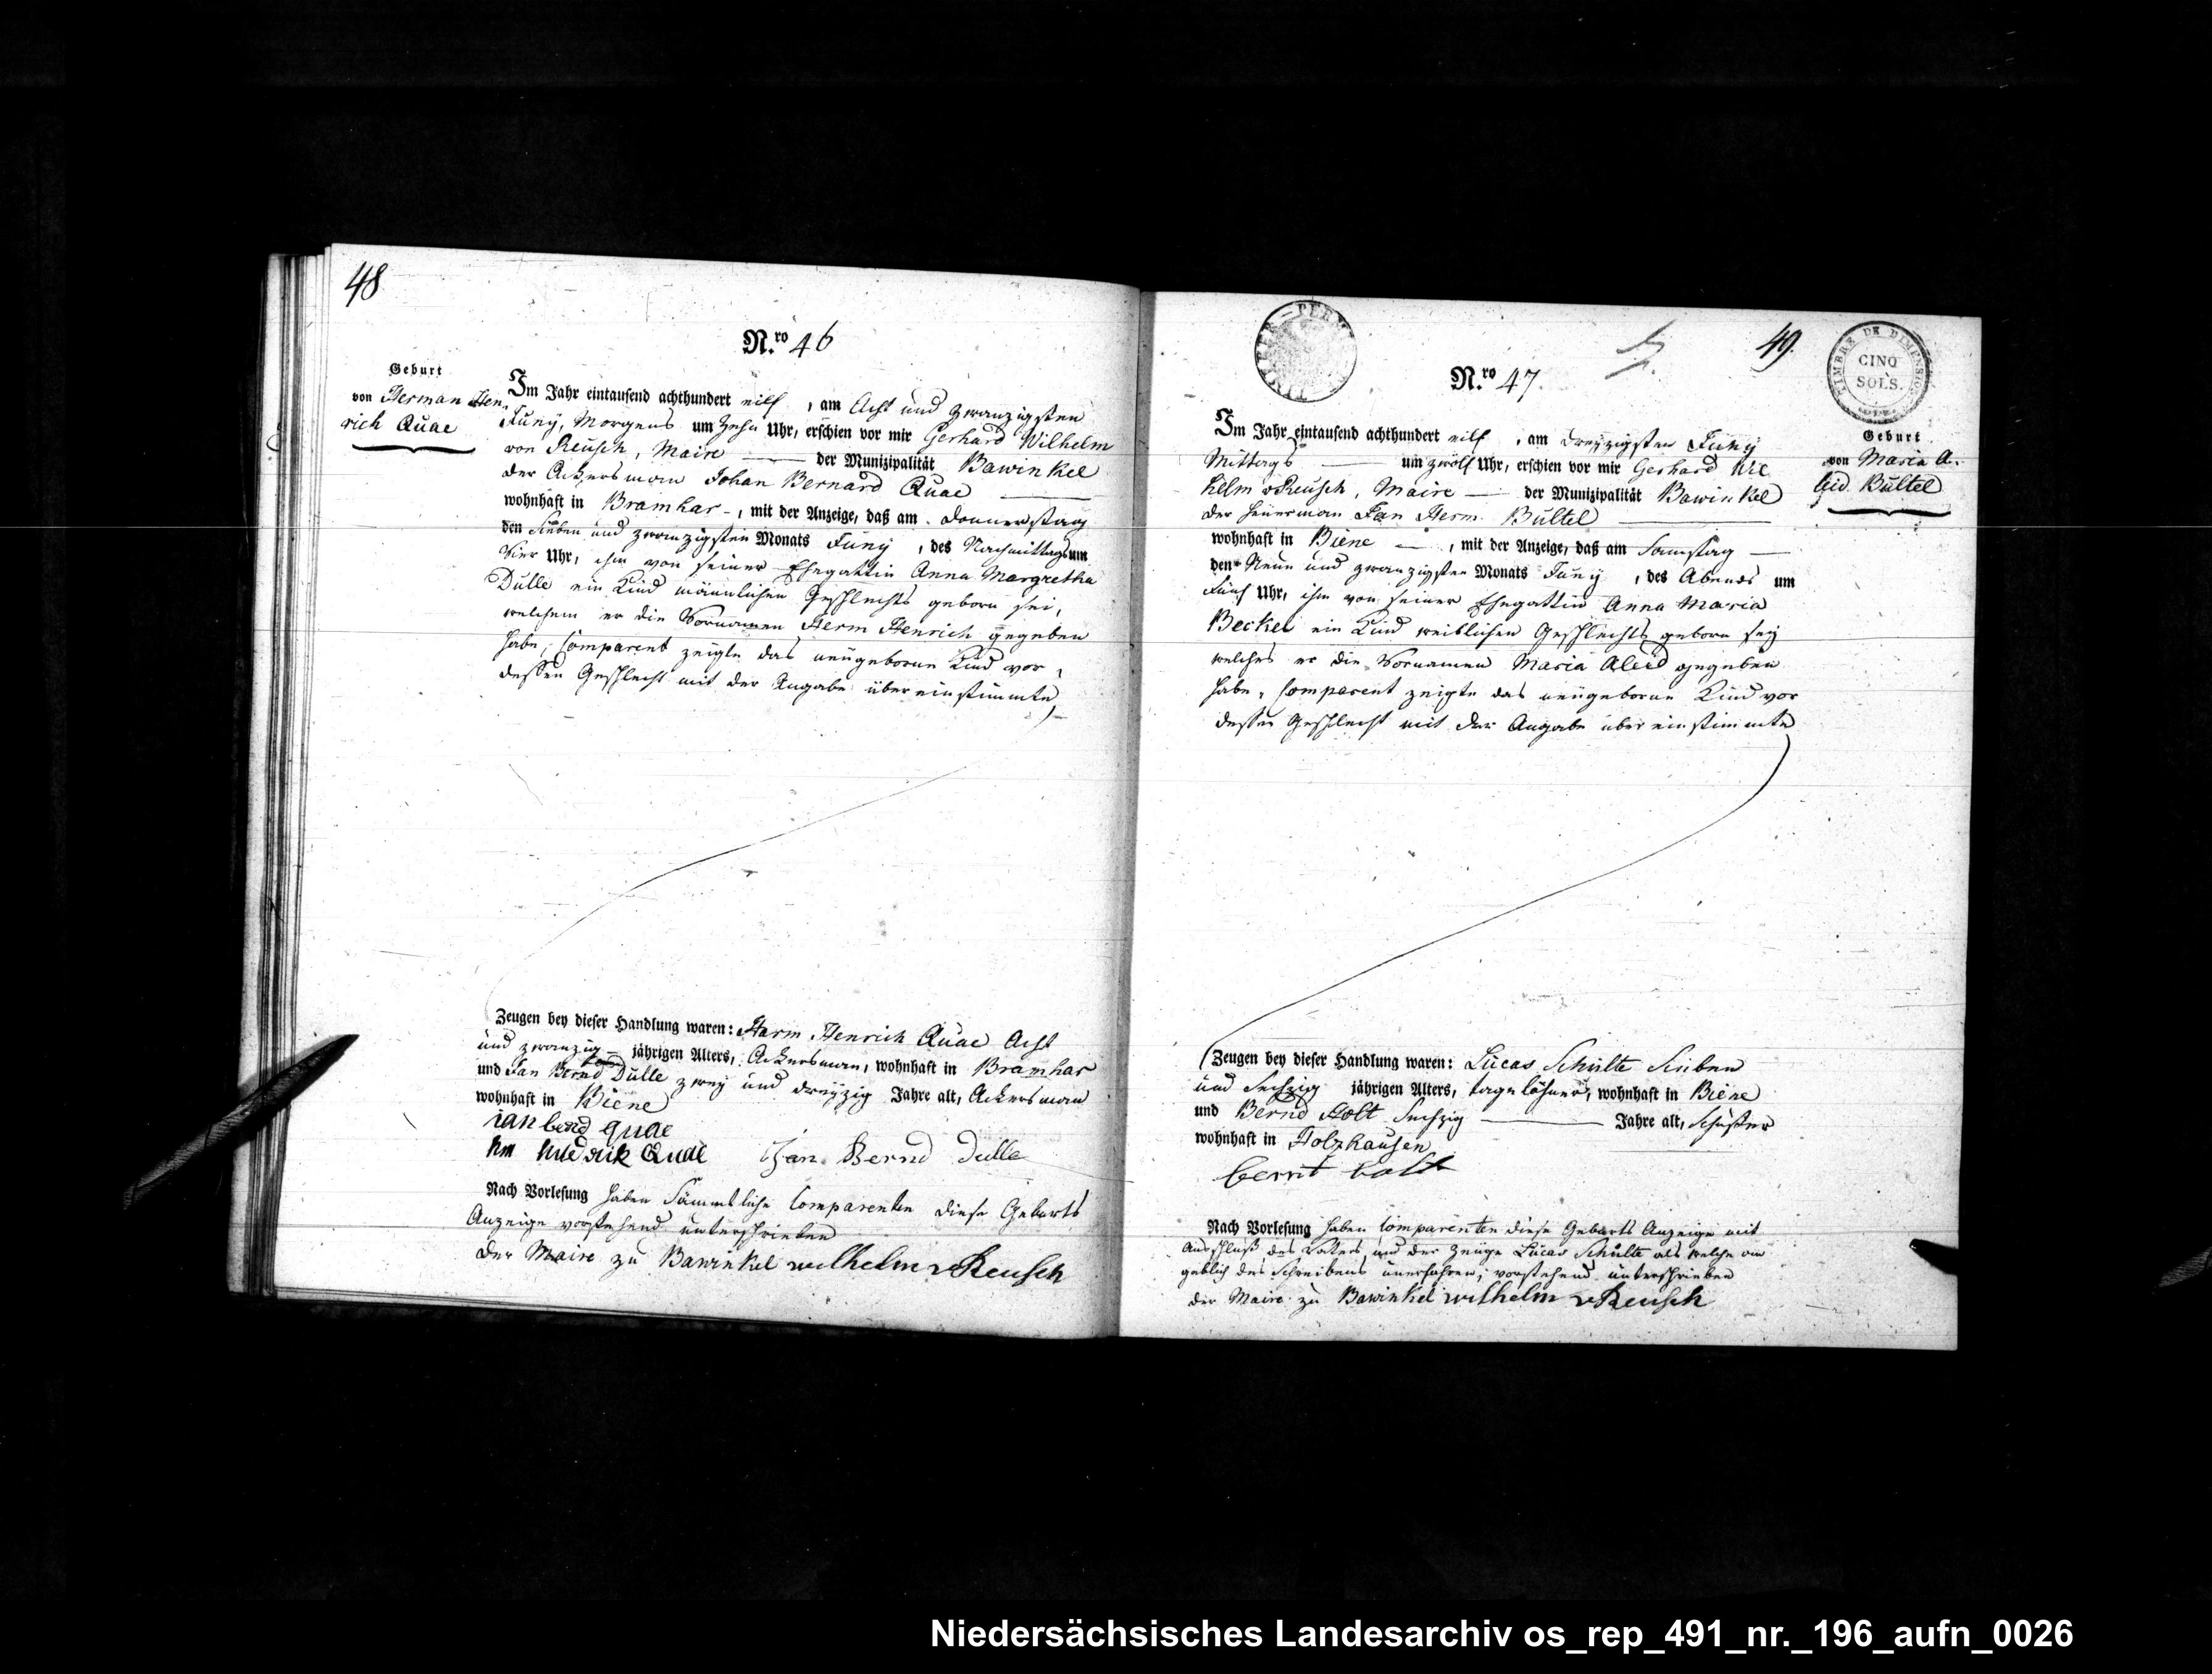 48
N.ro 46
Geburt
von Herman Hen
rich Quae
Im Jahr eintausend achthundert eilf , am Acht und zwanzigsten
Juny, Morgens um Zehn Uhr, erschien vor mir Gerhard Wilhelm
von Reusch, Maire der Munizipalität Bawinkel
der Ackersman Johan Bernard Quae
wohnhaft in Bramhar -, mit der Anzeige, daß am Donnerstag
den Sieben und zwanzigsten Monats Juny , des Nachmittags um
Vier Uhr, ihm von seiner Ehegattin Anna Margretha
Dulle ein Kind männlichen Geschlechts geborn sei,
welchem er die Vornamen Herm Henrich gegeben
habe, Comparent zeigte das neugeborne Kind vor,
dessen Geschlecht mit der Angabe übereinstimmte
Zeugen bey dieser Handlung waren: Harm Henrich Quae Acht
und zwanzig jährigen Alters, Ackersman, wohnhaft in Bramhar
und Jan Bernd Dulle zwey und dreyzig Jahre alt, Ackersman
wohnhaft in Biene
ian bernd quae
hm hndrik Quae Jan Bernd Dulle
Nach Vorlesung haben Sämmtliche Comparenten diese Geburts
Anzeige vorstehend unterschrieben
der Maire zu Bawinkel wilhelm v Reusch
49.
TIMBRE DE DIMENSION
CINQ
SOLS.
N.ro 47.
Geburt
von Maria A.
leid Bültel
Im Jahr eintausend achthundert eilf , am dreyzigsten Juny
Mittags um zwölf Uhr, erschien vor mir Gerhard Wil
helm v Reusch, Maire der Munizipalität Bawinkel
der Heuerman Jan Herm Bültel
wohnhaft in Biene , mit der Anzeige, daß am Samstag
den Neun und zwanzigsten Monats Juny , des Abends um
Fünf Uhr, ihm von seiner Ehegattin Anna Maria
Beckel ein Kind weiblichen Geschlechts geborn sey
welches er die Vornamen Maria Aleid gegeben
habe, Comparent zeigte das neugeborne Kind vor
dessen Geschlecht mit der Angabe übereinstimmte
Zeugen bey dieser Handlung waren: Lucas Schulte Sieben
und Sechzig jährigen Alters, tagelöhner, wohnhaft in Biene
und Bernd Holt Sechzig Jahre alt, Schuster
wohnhaft in Holzhausen
bernt holt
Nach Vorlesung haben Comparenten diese Geburts Anzeige mit
Ausschluß des Vaters und der Zeuge Lucas Schulte als welche an
geblich des Schreibens unerfahren, vorstehend unterschrieben
der Maire zu Bawinkel wilhelm v Reusch
Niedersächsisches Landesarchiv os_rep_491_nr._196_aufn_0026